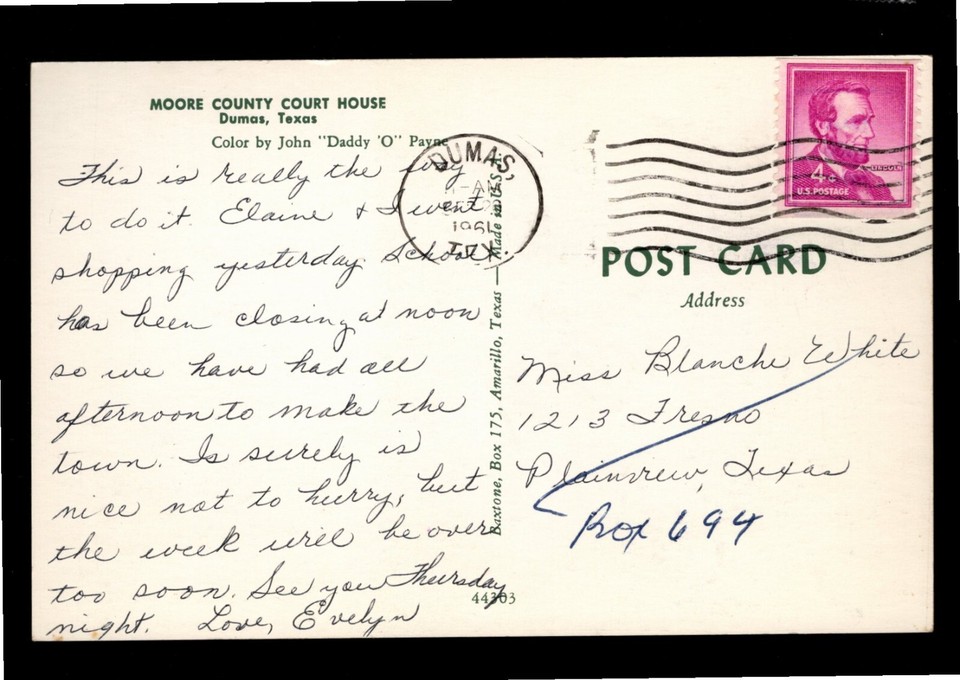 MOORE COUNTY COURT HOUSE
Dumas, Texas
Color by John "Daddy 'O" Payne
This is really the way
to do it. Elaine & I went
shopping yesterday. School
has been closing at noon
so we have had all
afternoon to make the
town. Is surely is
nice not to hurry, but
the week will be over
too soon. See you Thursday
night. Love, Evelyn
44303
Baxtone, Box 175, Amarillo, Texas — Made in USA
DUMAS,
AM
1961
TEX.
4¢
LINCOLN
U.S. POSTAGE
POST CARD
Address
Miss Blanche White
1213 Fresno
Plainview, Texas
Box 694